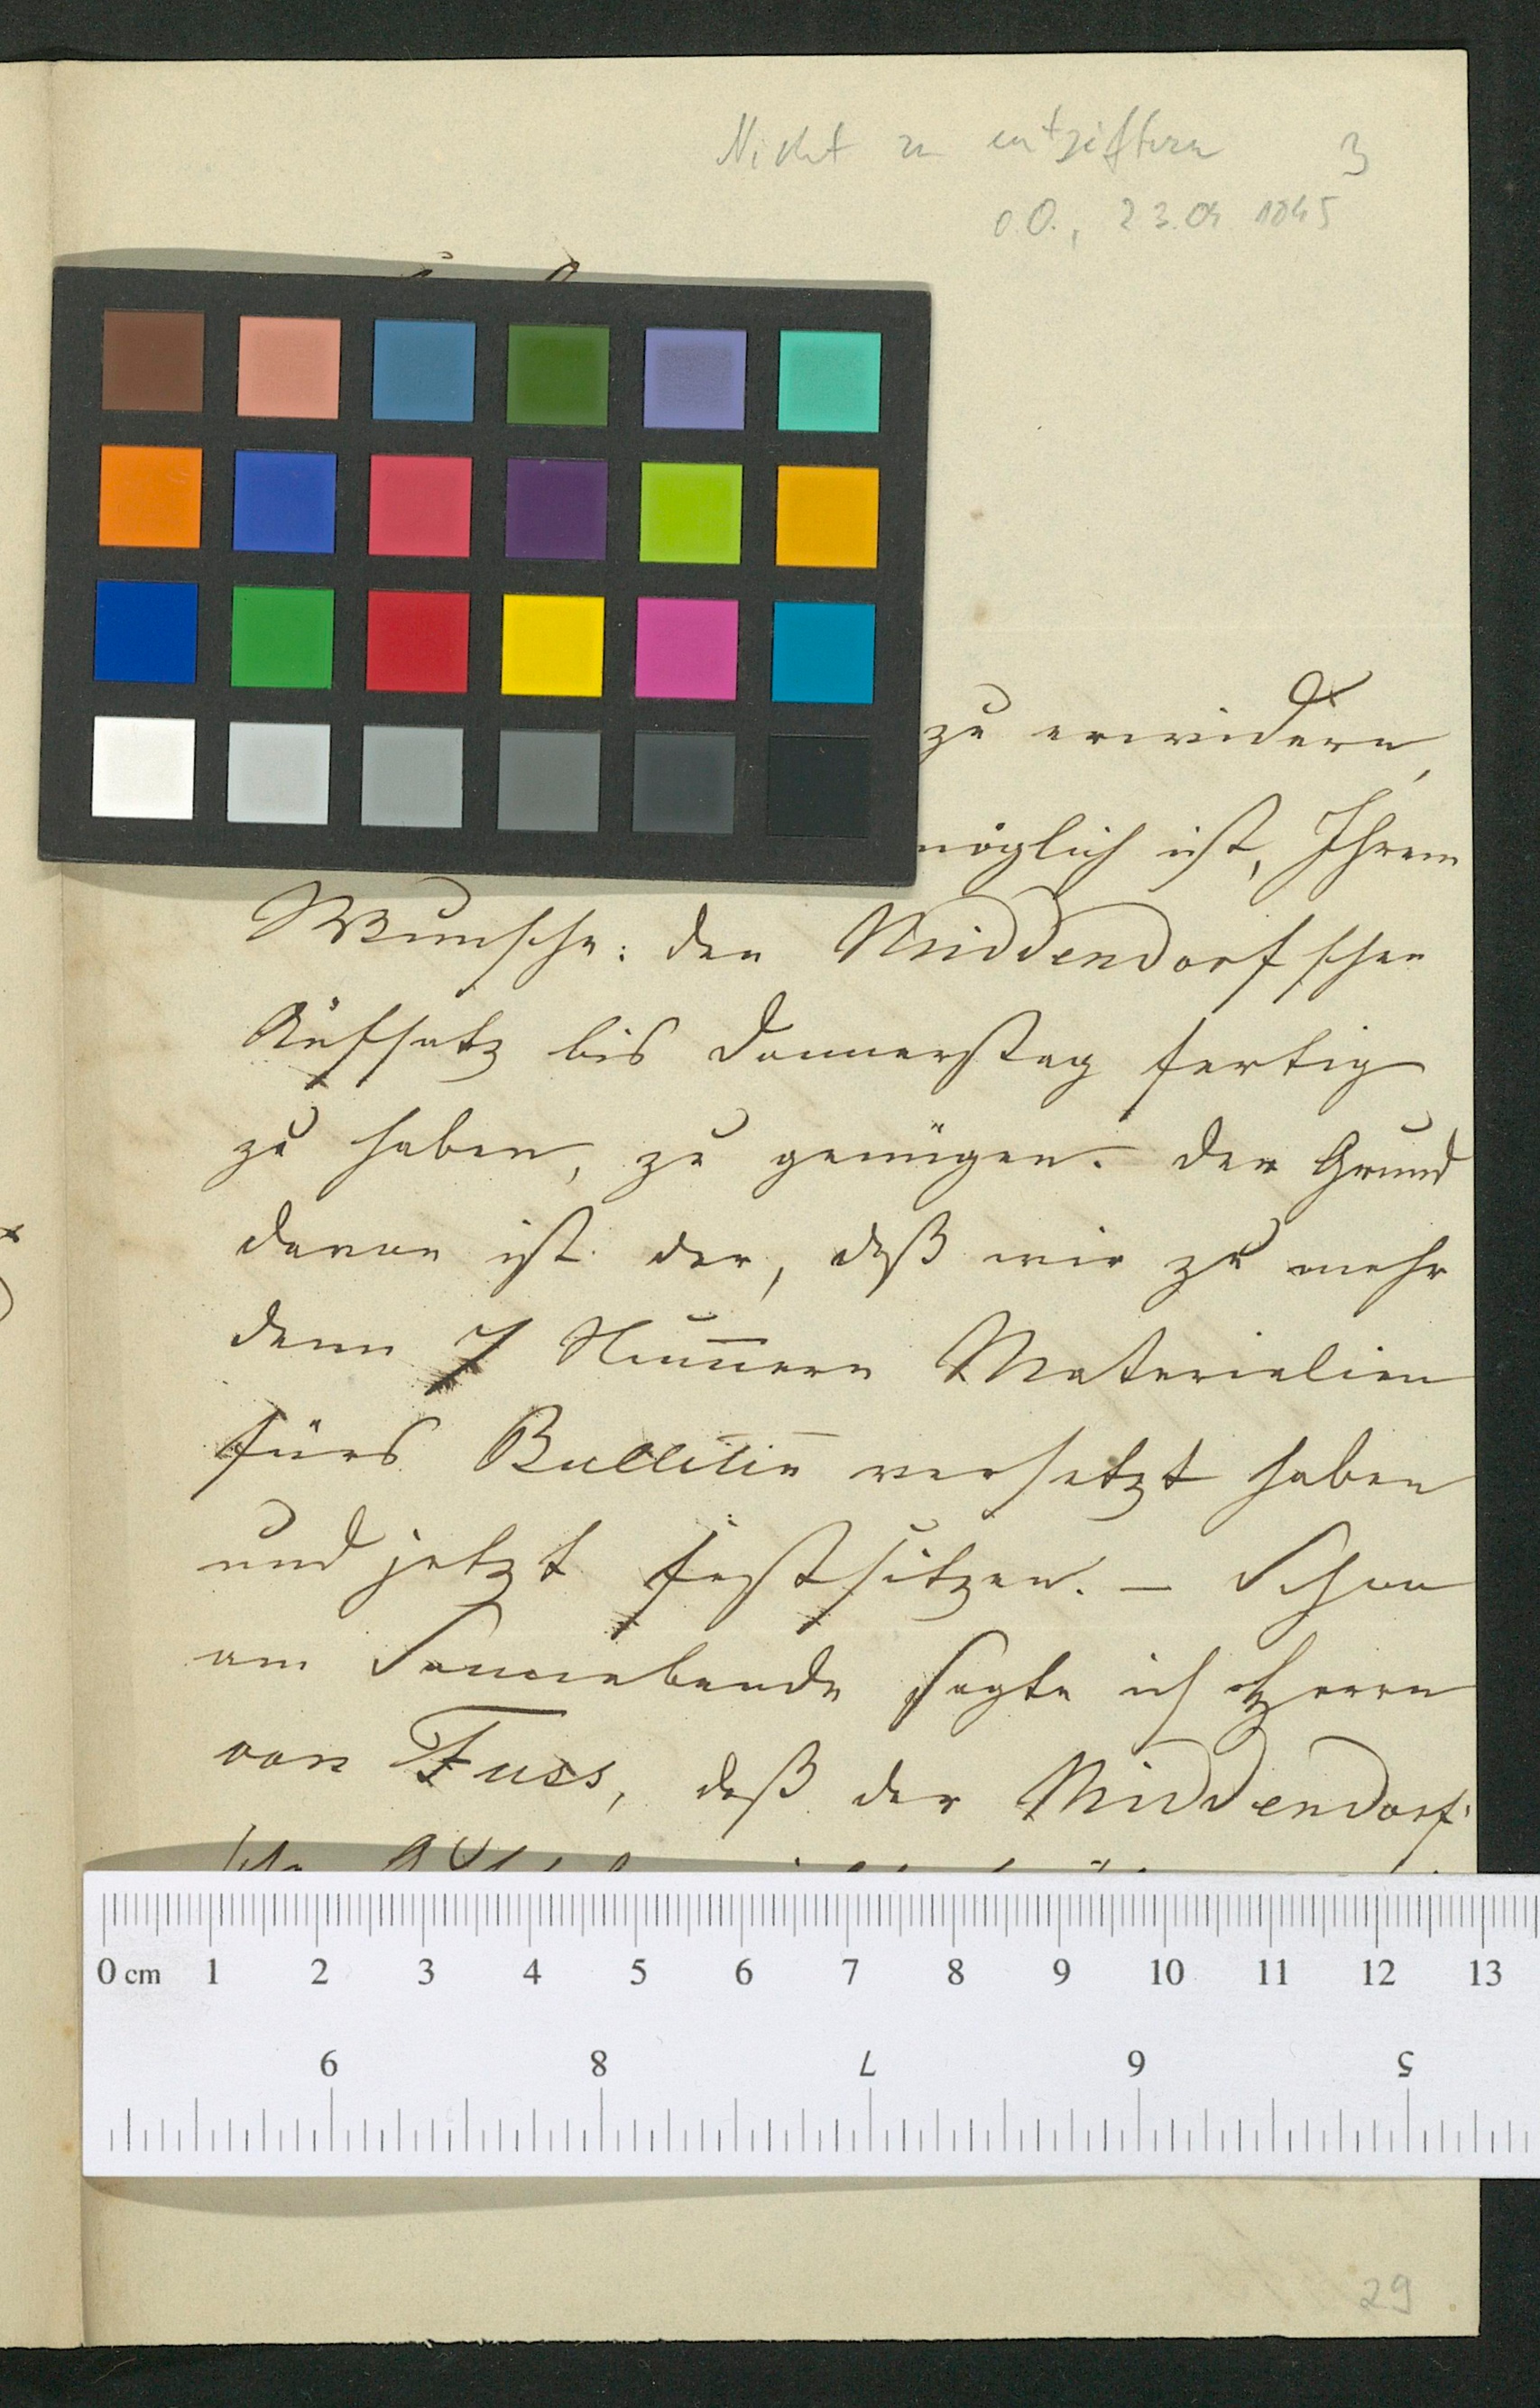 Nicht zu entziffern 3
o.O., 23.04 1845
zu erwidern,
möglich ist, Ihrem
Wunsche: den Middendorfschen
Aufsatz bis Donnerstag fertig
zu haben, zu genügen. Der Grund
davon ist der, daß wir zu mehr
denn 7 Num̅ern Materialien
fürs Bulletin versetzt haben
und jetzt festsitzen. – Schon
am Sonnabende sagte ich Herrn
von Fuss, daß der Middendorf-
0 cm 1 2 3 4 5 6 7 8 9 10 11 12 13
9 8 7 6 5
29